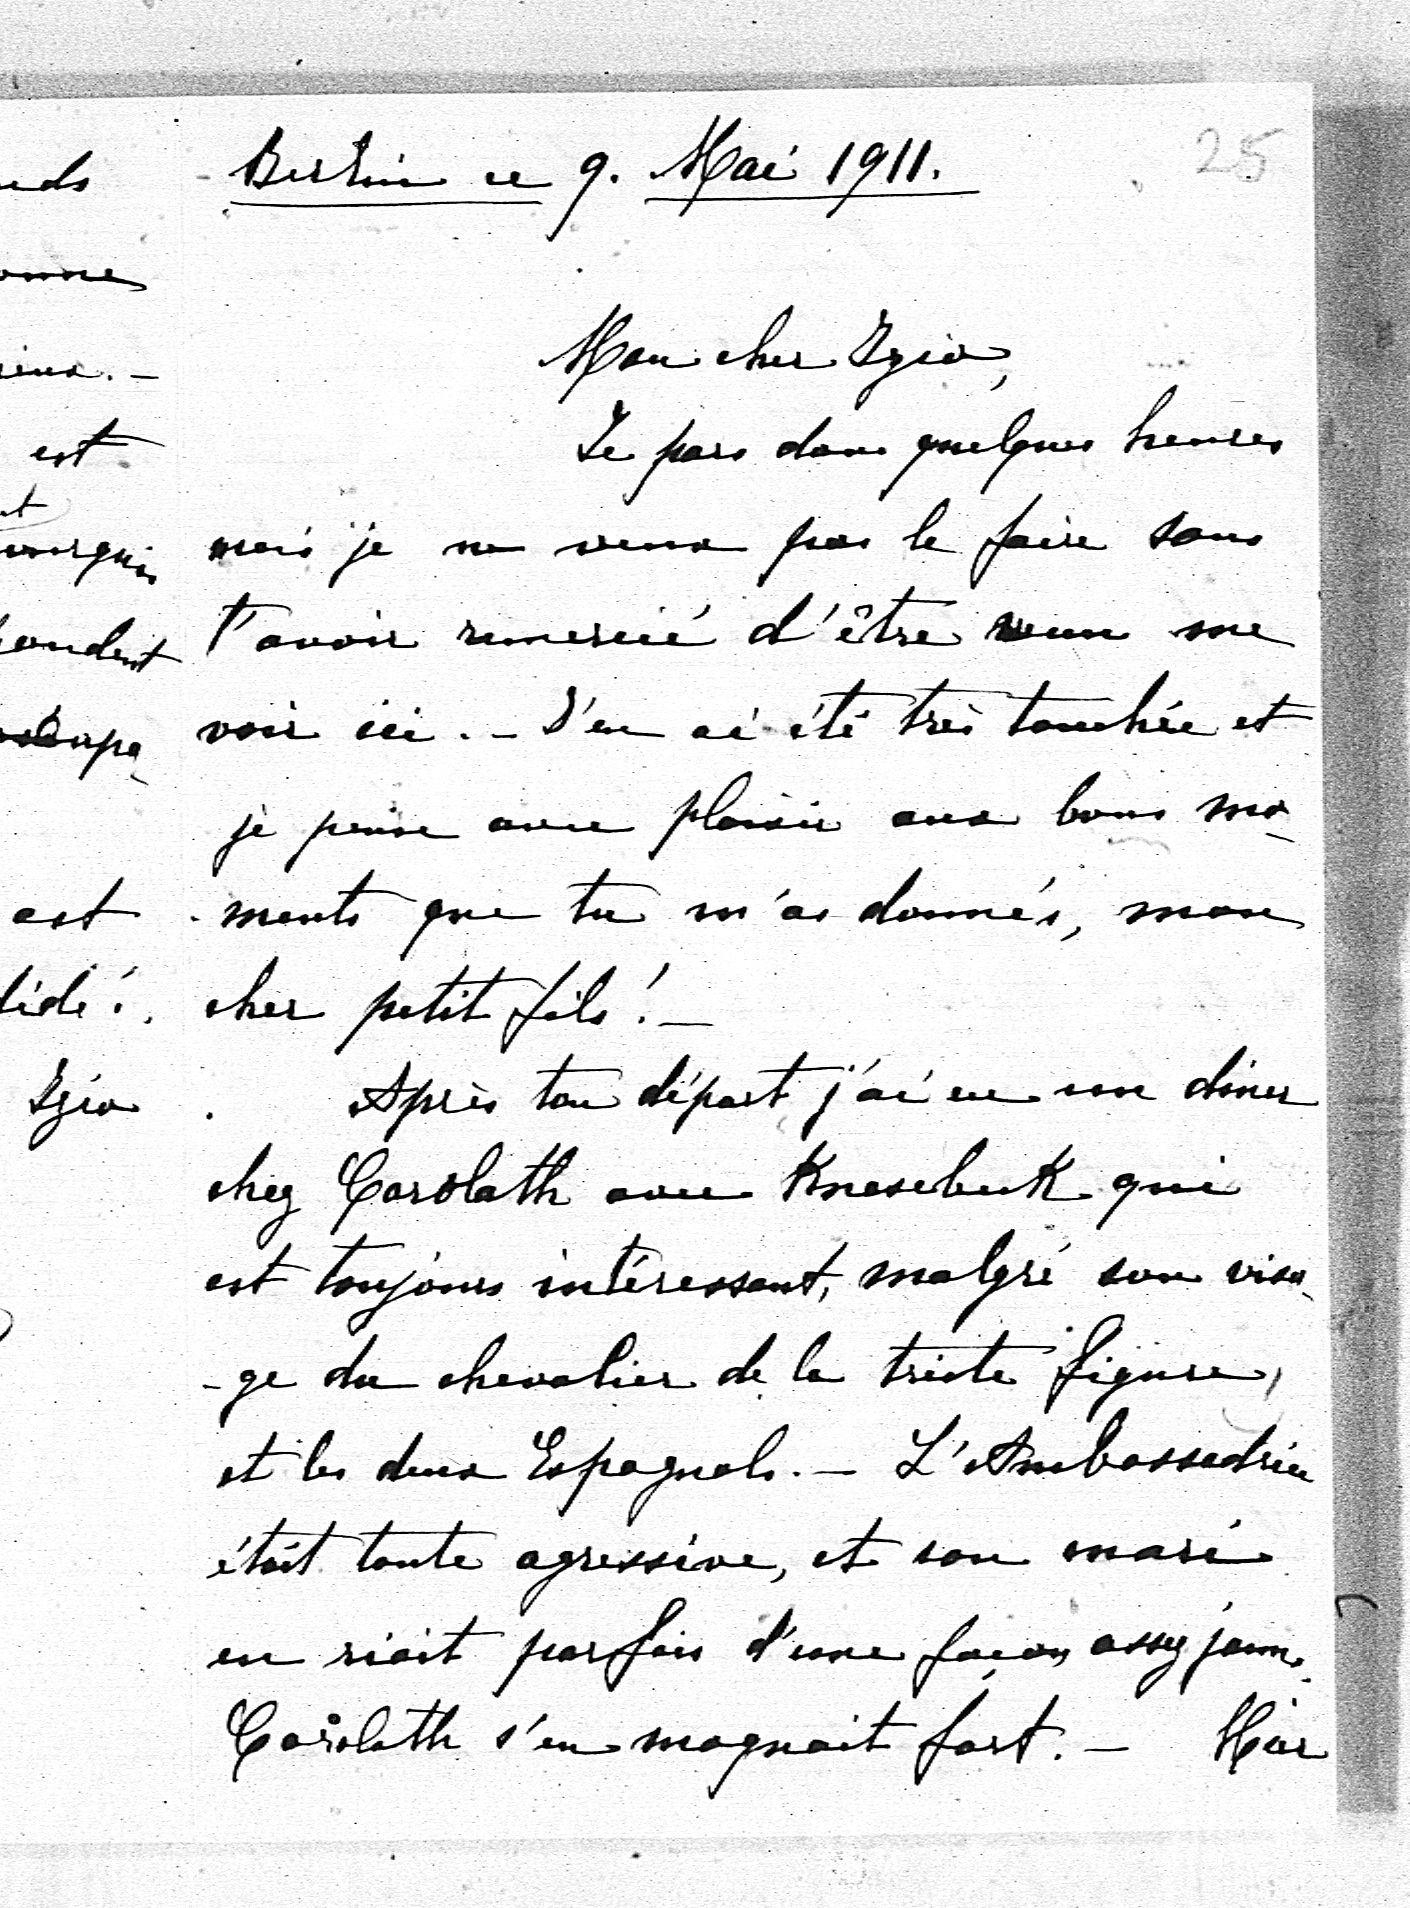 25
Berlin ce 9. Mai 1911.
Mon cher Izio,
Je pars dans quelques heures
mais je ne veux pas le faire sans
t'avoir remercié d'être venu me
voir ici. – J'en ai été très touchée et
je pense avec plaisir aux bons mo-
ments que tu m'as donnés, mon
cher petit fils! –
Après ton départ j'ai eu un diner
chez Carolath avec Knesebeck qui
est toujours intéressant, malgré son visa-
-ge du chevalier de la triste figure,
et les deux Espagnols. – L'Ambassadrice
était toute agressive, et son mari
en riait parfois d'une façon assez jaune.
Carolath s'en moquait fort. – Hier
est
est
lidé!
Izio